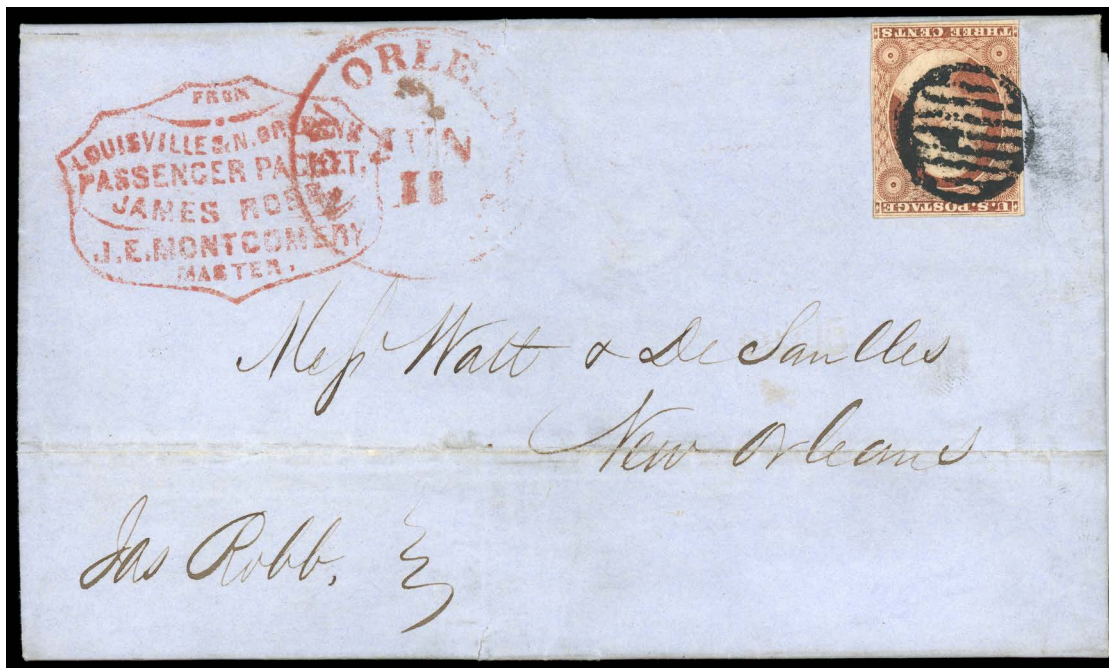 FROM
LOUISVILLE & N. ORLEANS
PASSENGER PACKET,
JAMES ROBB
J.E. MONTGOMERY
MASTER.
NEW ORLEANS
JUN
11
THREE CENTS
U.S. POSTAGE
Messrs Watt & De Saulles
New Orleans
Jas Robb,